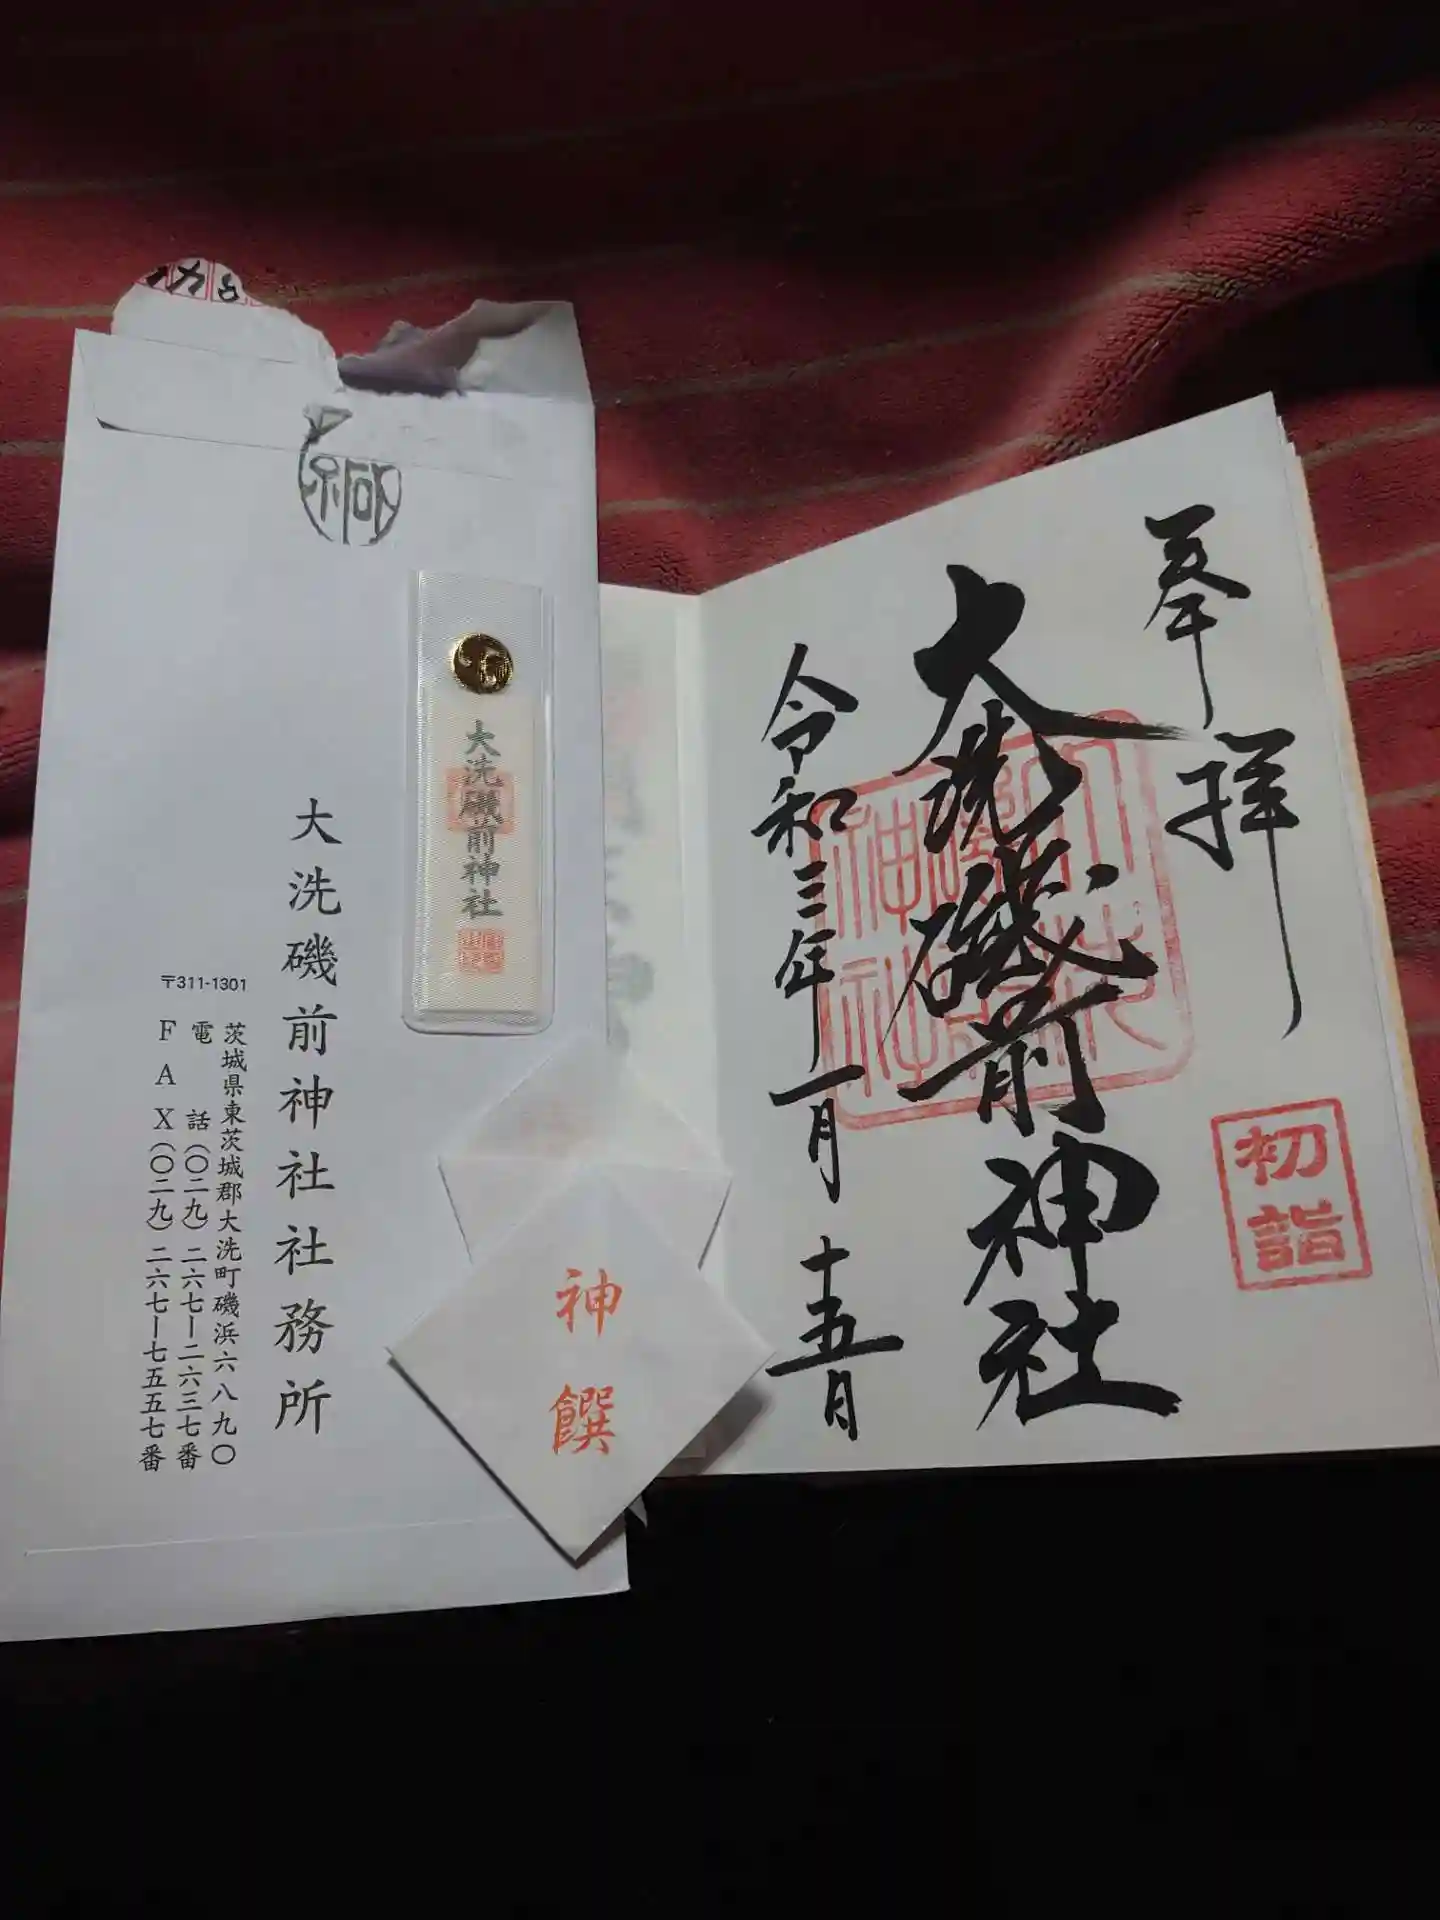 奉拝
大洗磯前神社
令和三年一月十五日
初詣
大洗磯前神社
神饌
大洗磯前神社社務所
〒311-1301
茨城県東茨城郡大洗町磯浜六八九〇
電話(〇二九)二六七ー二六三七番
FAX(〇二九)二六七ー七五五七番